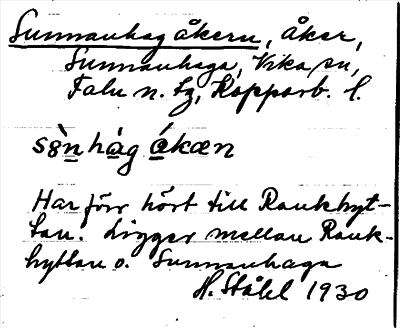 Sunnanhagåkern, åker,
Sunnanhaga, Vika sn,
Falu n. tg, Kopparb. l.
sǝ̀nhȧg ǻkæn
Har förr hört till Rankhyt-
tan. Ligger mellan Rank-
hyttan o. Sunnanhaga
H. Ståhl 1930